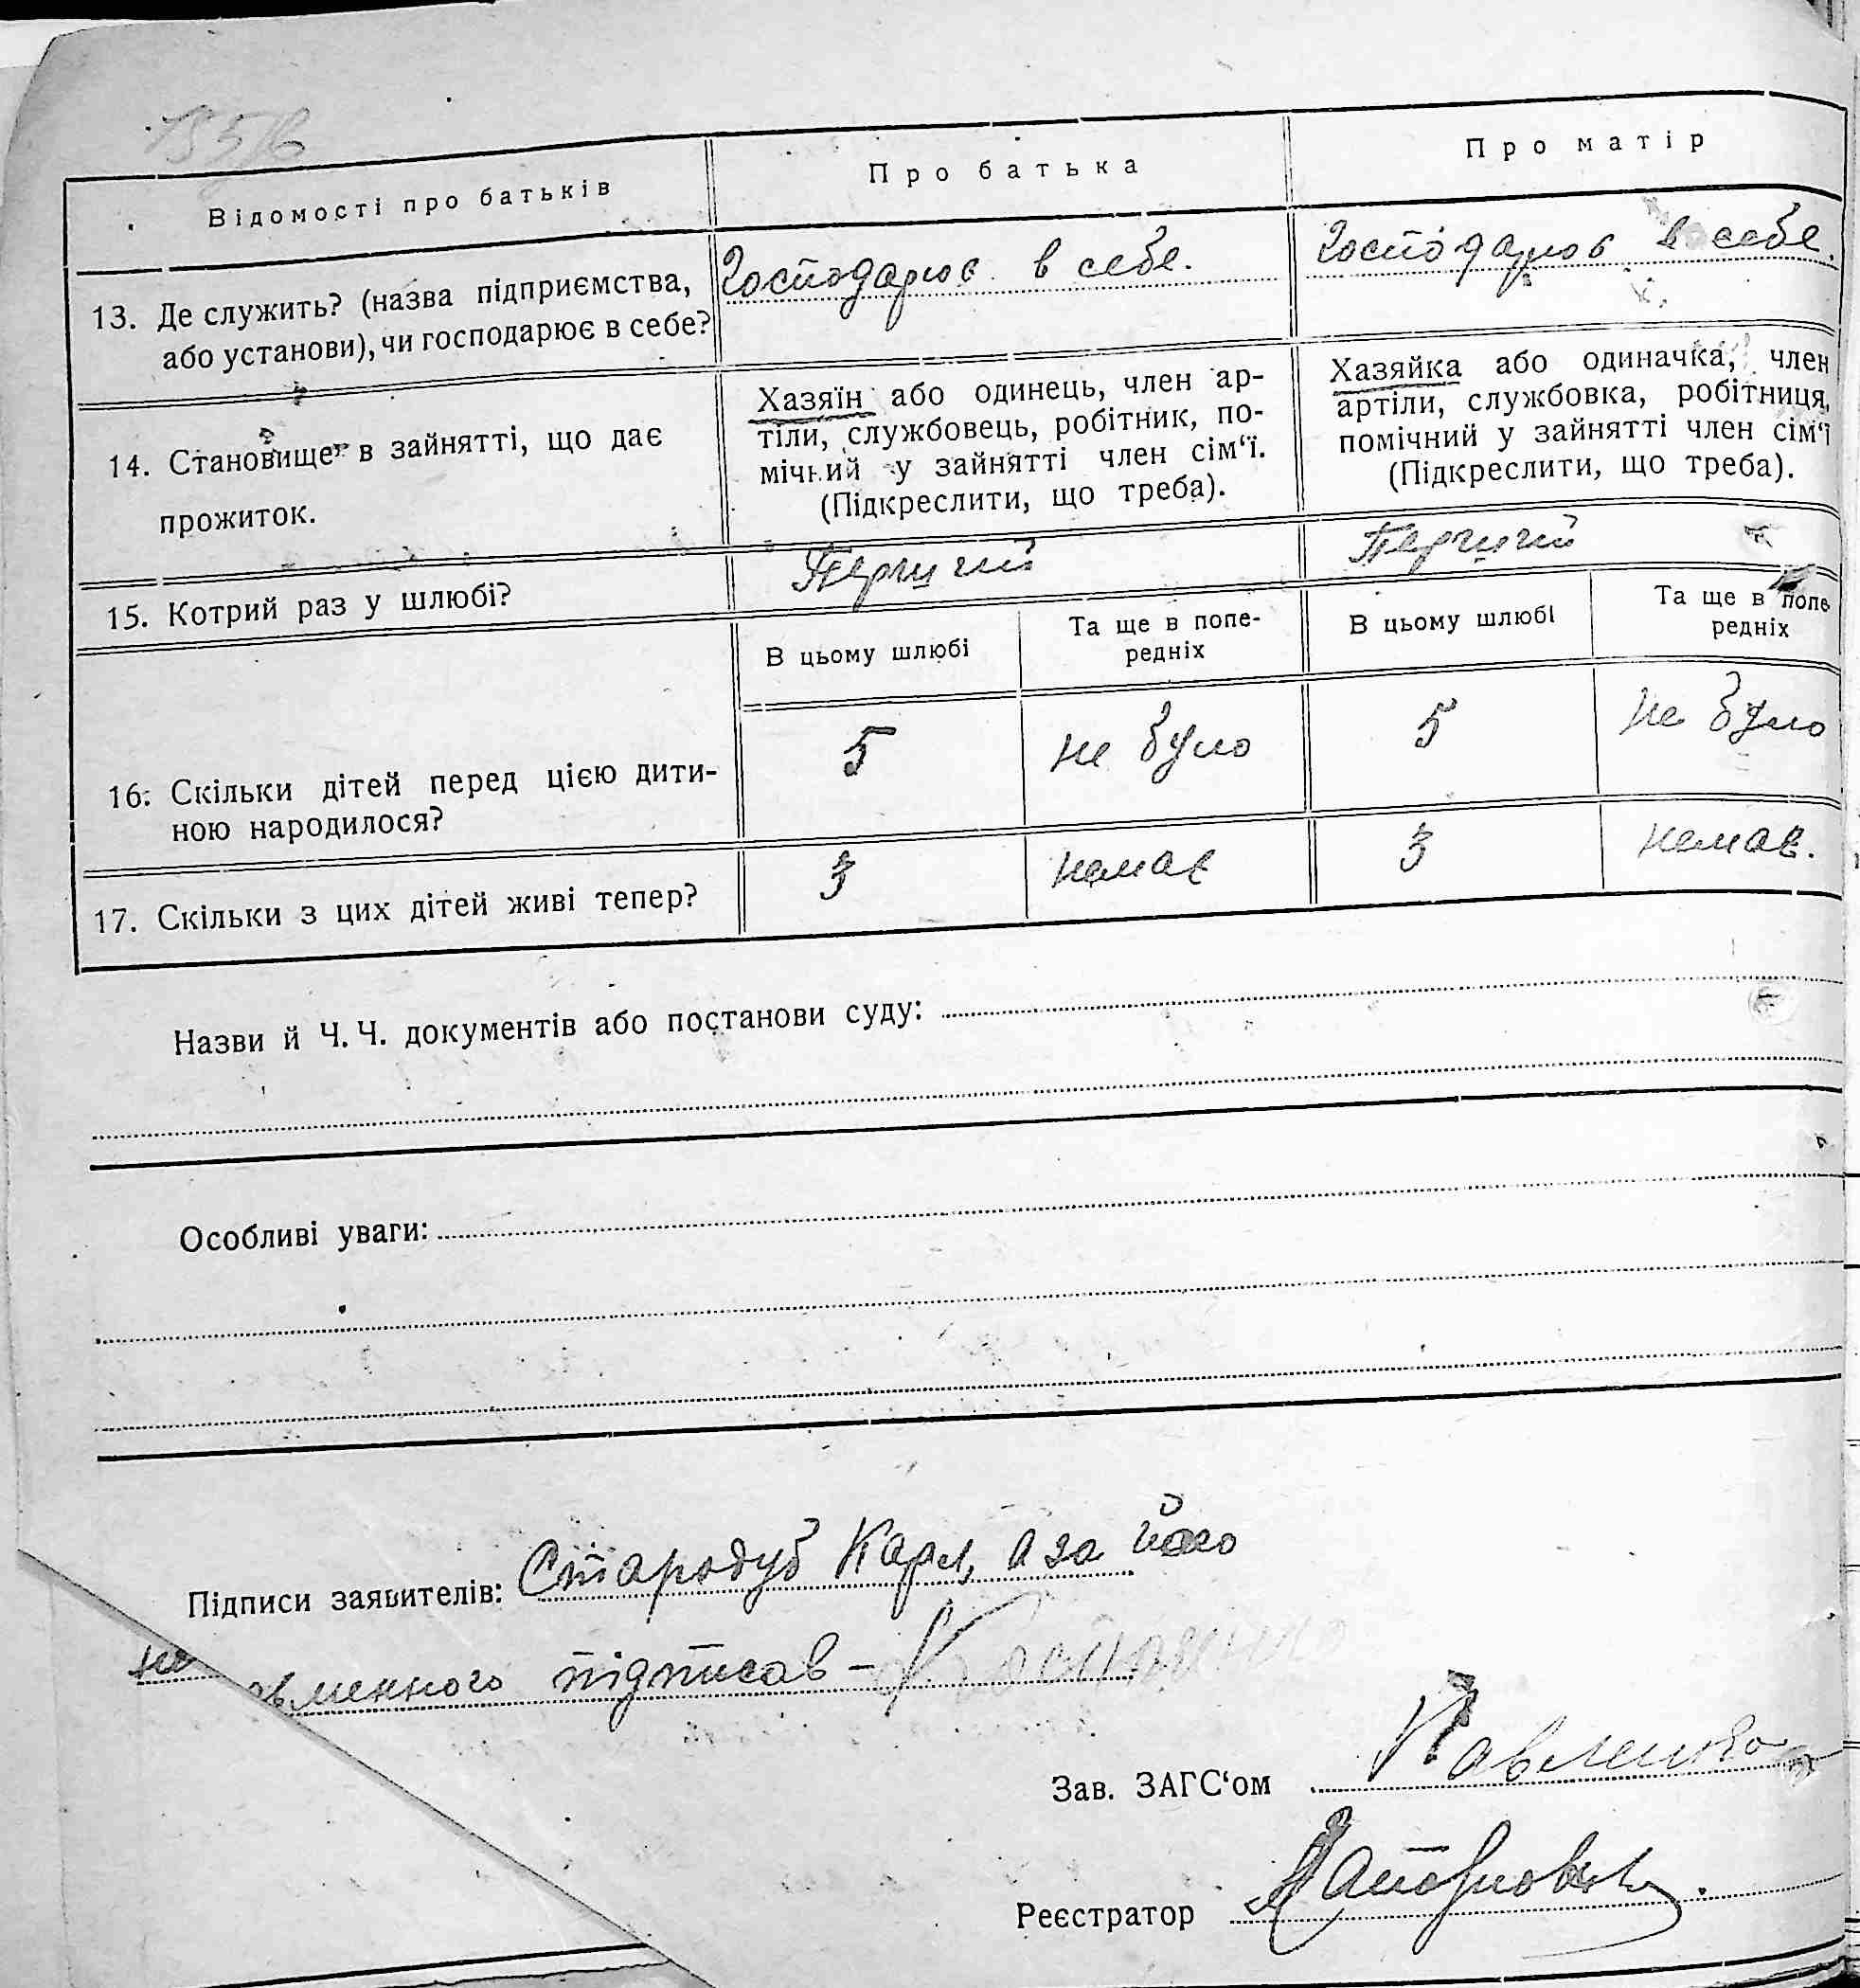 Відомості про батьків
Про батька
Про матір
13. Де служить? (назва підприємства,
або установи), чи господарює в себе?
Господарює в себе.
Господарює в себе.
14. Становище в зайнятті, що дає
прожиток.
Хазяїн або одинець, член ар-
тіли, службовець, робітник, по-
мічний у зайнятті член сім‘ї.
(Підкреслити, що треба).
Хазяйка або одиначка, член
артіли, службовка, робітниця,
помічний у зайнятті член сім‘ї
(Підкреслити, що треба).
15. Котрий раз у шлюбі?
Перший
Перший
В цьому шлюбі
Та ще в попе-
редніх
В цьому шлюбі
Та ще в попе-
редніх
16. Скільки дітей перед цією дити-
ною народилося?
5
не було
5
не було
17. Скільки з цих дітей живі тепер?
3
немає
3
немає.
Назви й Ч. Ч. документів або постанови суду:
Особливі уваги:
Підписи заявителів: Стародуб Карл, а за його
не
підписав –
Зав. ЗАГС‘ом Павленко
Реєстратор